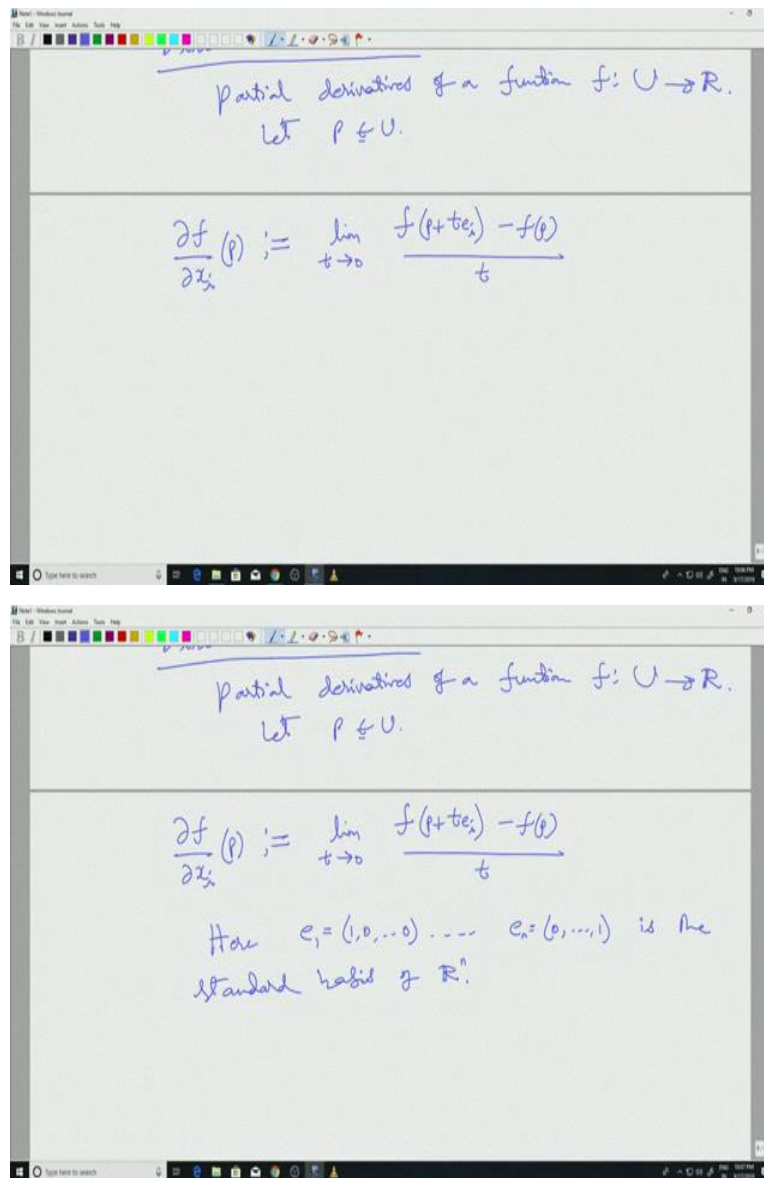 Note1 - Windows Journal
File Edit View Insert Actions Tools Help
Partial derivatives of a function f: U → R.
Let p ∈ U.
∂f/∂x_i (p) := lim_{t→0} (f(p+te_i) - f(p))/t
Type here to search
Note1 - Windows Journal
File Edit View Insert Actions Tools Help
Partial derivatives of a function f: U → R.
Let p ∈ U.
∂f/∂x_i (p) := lim_{t→0} (f(p+te_i) - f(p))/t
Here e_1 = (1,0,..0) .... e_n = (0,...,1) is the
standard basis of R^n.
Type here to search